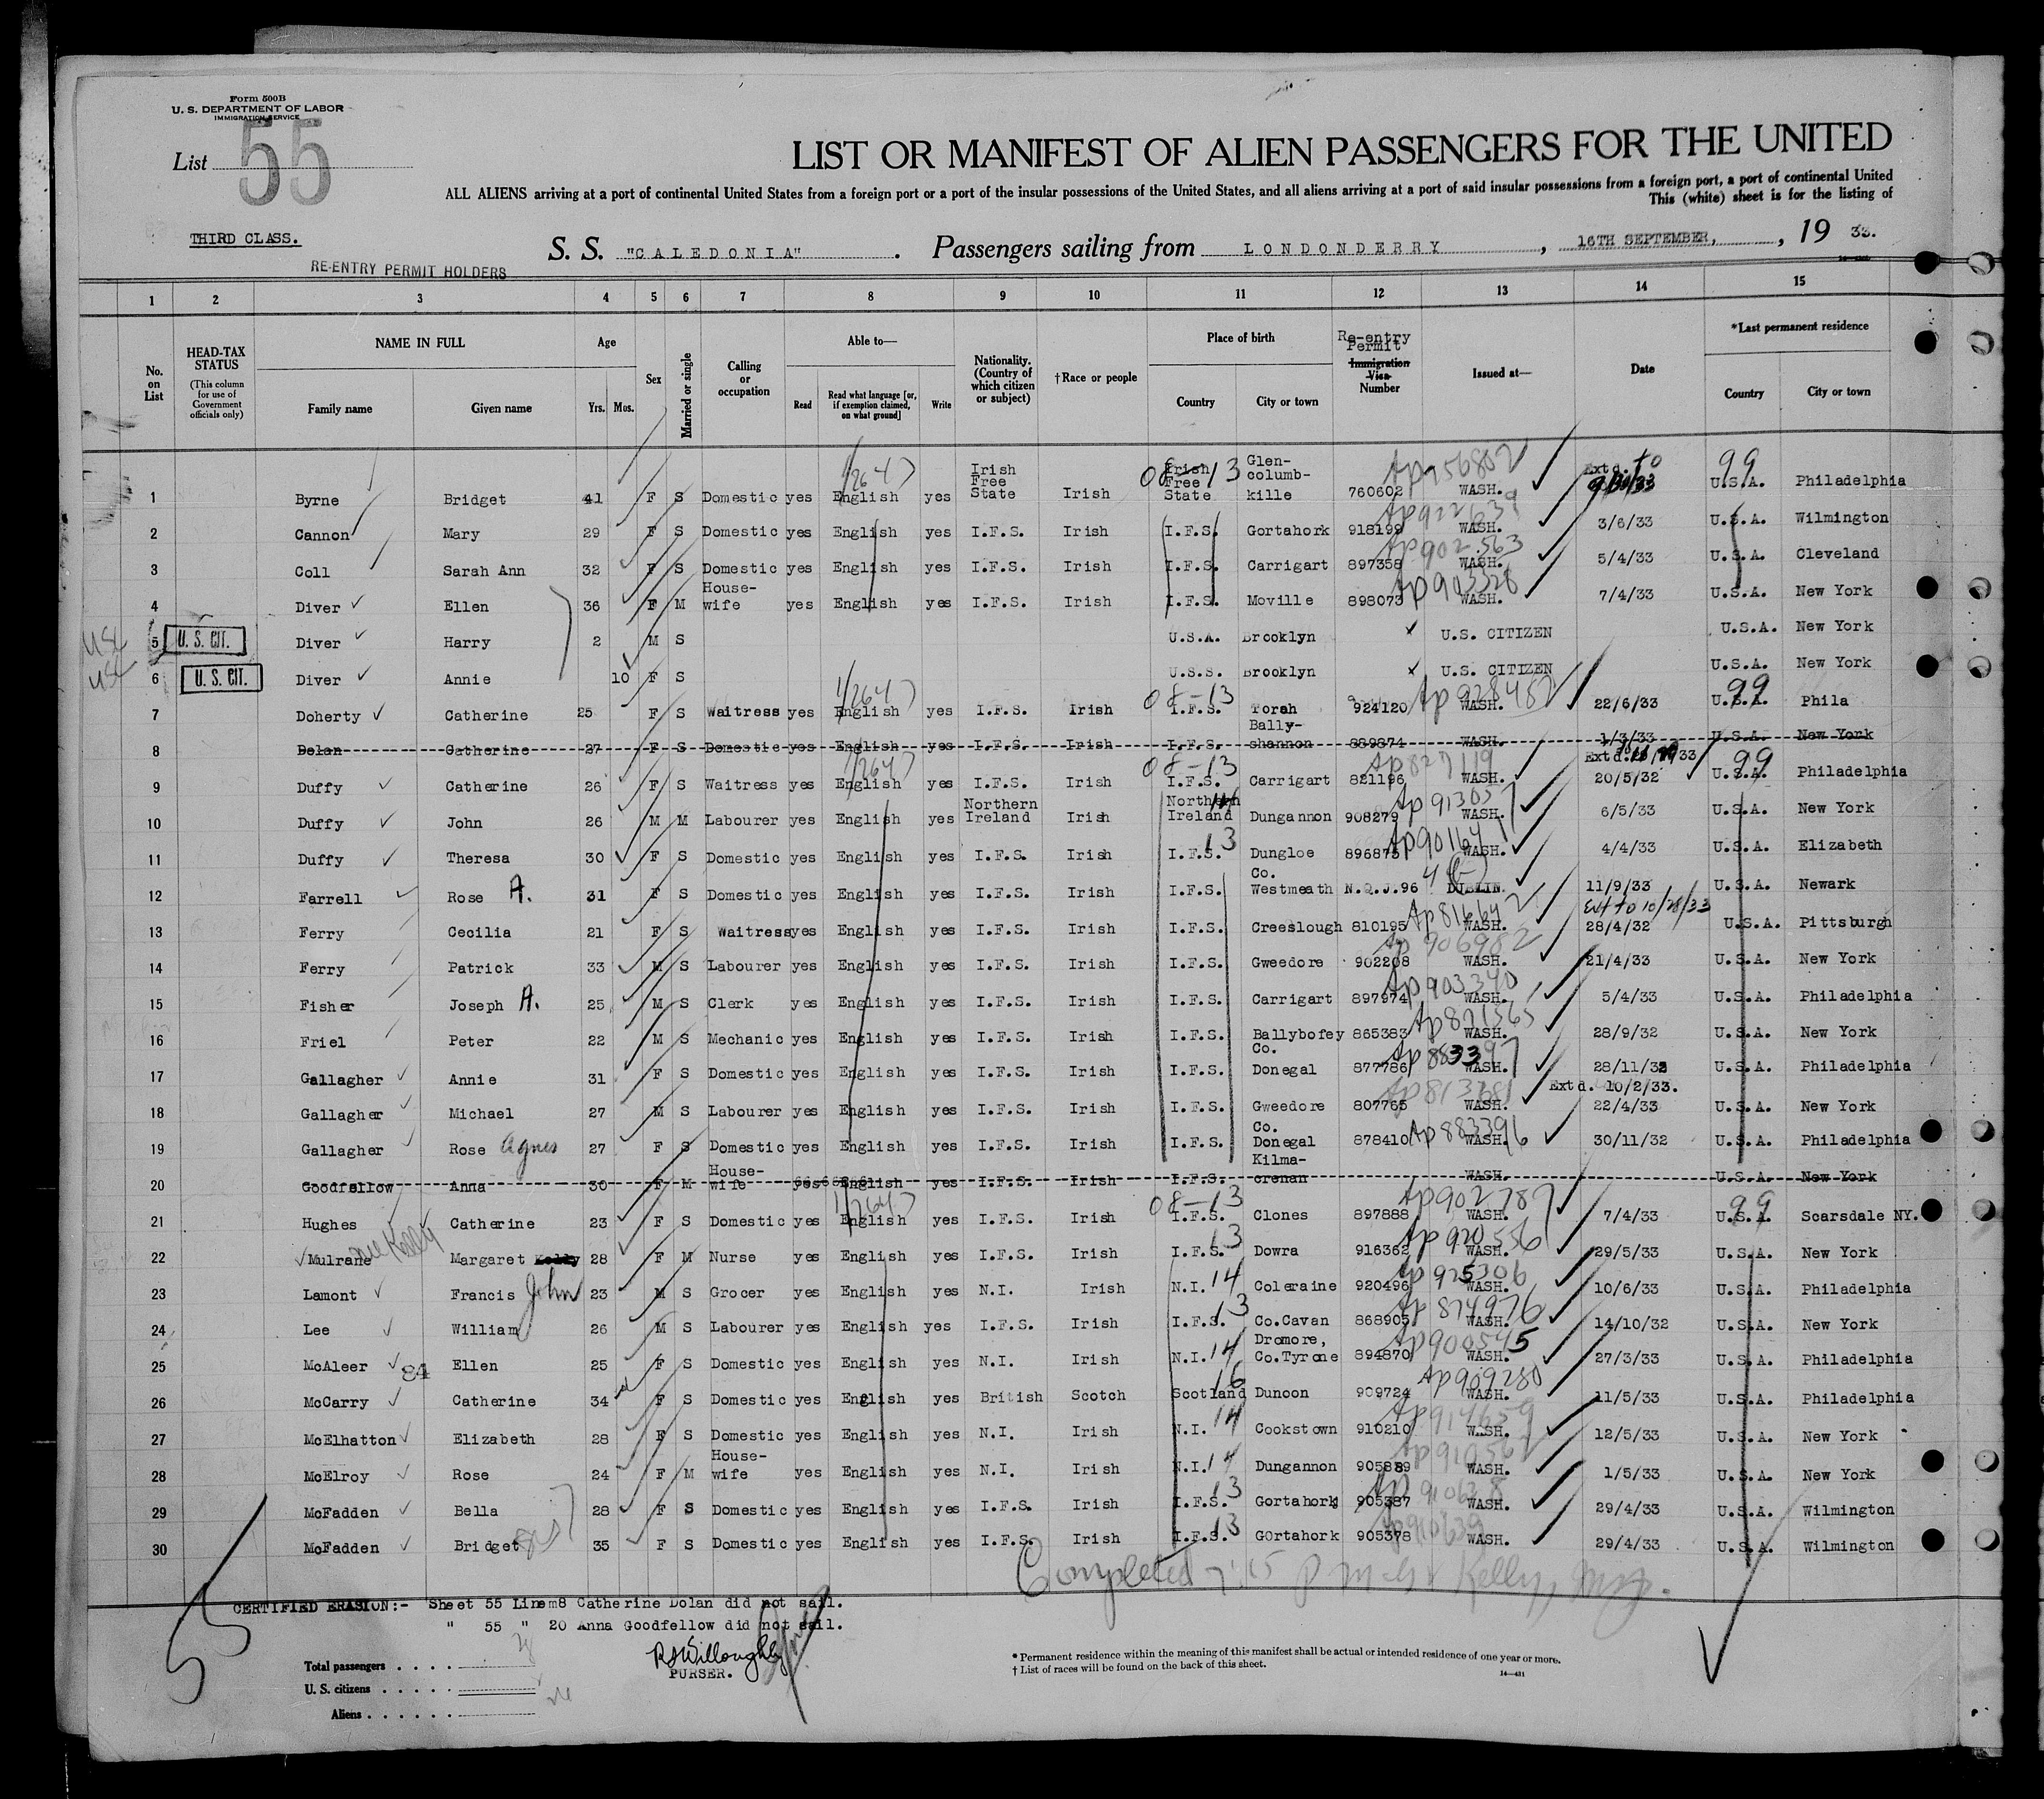 Form 500B
U. S. DEPARTMENT OF LABOR
IMMIGRATION SERVICE
List 55
LIST OR MANIFEST OF ALIEN PASSENGERS FOR THE UNITED
ALL ALIENS arriving at a port of continental United States from a foreign port or a port of the insular possessions of the United States, and all aliens arriving at a port of said insular possessions from a foreign port, a port of continental United
This (white) sheet is for the listing of
THIRD CLASS.
S. S. "CALEDONIA" . Passengers sailing from LONDONDERRY , 16TH SEPTEMBER, , 19 33.
RE-ENTRY PERMIT HOLDERS
1 2 3 4 5 6 7 8 9 10 11 12 13 14 15
No. on List
HEAD-TAX STATUS (This column for use of Government officials only)
NAME IN FULL Family name Given name
Age Yrs. Mos.
Sex
Married or single
Calling or occupation
Able to— Read Read what language [or, if exemption claimed, on what ground] Write
Nationality. (Country of which citizen or subject)
†Race or people
Place of birth Country City or town
Re-entry Permit Immigration Visa Number
Issued at—
Date
*Last permanent residence Country City or town
1 Byrne Bridget 41 F S Domestic yes English yes Irish Free State Irish Irish Free State 08-13 Glen-columb-kille 760602 WASH. Extd. to U.S.A. 99 Philadelphia
2 Cannon Mary 29 F S Domestic yes English yes I.F.S. Irish I.F.S. Gortahork 918199 WASH. 3/6/33 U.S.A. Wilmington
3 Coll Sarah Ann 32 F S Domestic yes English yes I.F.S. Irish I.F.S. Carrigart 897358 Ap902563 WASH. 5/4/33 U.S.A. Cleveland
4 Diver Ellen 36 F M House-wife yes English yes I.F.S. Irish I.F.S. Moville 898073 WASH. 7/4/33 U.S.A. New York
USC 5 U.S. CIT. Diver Harry 2 M S U.S.A. Brooklyn U.S. CITIZEN U.S.A. New York
USC 6 U.S. CIT. Diver Annie 10 F S U.S.S. Brooklyn U.S. CITIZEN U.S.A. New York
7 Doherty Catherine 25 F S Waitress yes English yes I.F.S. Irish I.F.S. 08-13 Torah 924120 WASH. 22/6/33 U.S.A. 99 Phila
8 Dolan Catherine 27 F S Domestic yes English yes I.F.S. Irish I.F.S. Bally-shannon 889874 WASH. 1/3/33 U.S.A. New York
9 Duffy Catherine 26 F S Waitress yes English yes I.F.S. Irish I.F.S. 08-13 Carrigart 821196 Ap827119 WASH. Extd. 20/5/32 U.S.A. 99 Philadelphia
10 Duffy John 26 M M Labourer yes English yes Northern Ireland Irish Northern Ireland 14 Dungannon 908279 WASH. 6/5/33 U.S.A. New York
11 Duffy Theresa 30 F S Domestic yes English yes I.F.S. Irish I.F.S. 13 Dungloe 896875 WASH. 4/4/33 U.S.A. Elizabeth
12 Farrell Rose A. 31 F S Domestic yes English yes I.F.S. Irish I.F.S. Co. Westmeath N.Q.J.96 DUBLIN. 11/9/33 U.S.A. Newark
13 Ferry Cecilia 21 F S Waitress yes English yes I.F.S. Irish I.F.S. Creeslough 810195 WASH. Ext to 10/28/33 28/4/32 U.S.A. Pittsburgh
14 Ferry Patrick 33 M S Labourer yes English yes I.F.S. Irish I.F.S. Gweedore 902208 Ap906982 WASH. 21/4/33 U.S.A. New York
15 Fisher Joseph A. 25 M S Clerk yes English yes I.F.S. Irish I.F.S. Carrigart 897974 Ap903340 WASH. 5/4/33 U.S.A. Philadelphia
16 Friel Peter 22 M S Mechanic yes English yes I.F.S. Irish I.F.S. Ballybofey 865383 WASH. 28/9/32 U.S.A. New York
17 Gallagher Annie 31 F S Domestic yes English yes I.F.S. Irish I.F.S. Co. Donegal 877786 WASH. 28/11/32 U.S.A. Philadelphia
18 Gallagher Michael 27 M S Labourer yes English yes I.F.S. Irish I.F.S. Gweedore 807765 WASH. Extd. 10/2/33. 22/4/33 U.S.A. New York
19 Gallagher Rose Agnes 27 F S Domestic yes English yes I.F.S. Irish I.F.S. Co. Donegal 878410 Ap883396 WASH. 30/11/32 U.S.A. Philadelphia
20 Goodfellow Anna 30 F M House-wife yes English yes I.F.S. Irish I.F.S. Kilma-crenan WASH. U.S.A. New York
21 Hughes Catherine 23 F S Domestic yes English yes I.F.S. Irish I.F.S. 08-13 Clones 897888 Ap902787 WASH. 7/4/33 U.S.A. 99 Scarsdale NY.
22 Mulrane née Kelly Margaret Kelly 28 F M Nurse yes English yes I.F.S. Irish I.F.S. 13 Dowra 916362 Ap920556 WASH. 29/5/33 U.S.A. New York
23 Lamont Francis John 23 M S Grocer yes English yes N.I. Irish N.I. 14 Coleraine 920496 Ap925306 WASH. 10/6/33 U.S.A. Philadelphia
24 Lee William 26 M S Labourer yes English yes I.F.S. Irish I.F.S. 13 Co.Cavan 868905 Ap874976 WASH. 14/10/32 U.S.A. New York
25 McAleer 84 Ellen 25 F S Domestic yes English yes N.I. Irish N.I. 14 Dromore, Co.Tyrone 894870 Ap900545 WASH. 27/3/33 U.S.A. Philadelphia
26 McCarry Catherine 34 F S Domestic yes English yes British Scotch Scotland 16 Dunoon 909724 Ap909280 WASH. 11/5/33 U.S.A. Philadelphia
27 McElhatton Elizabeth 28 F S Domestic yes English yes N.I. Irish N.I. 14 Cookstown 910210 Ap914659 WASH. 12/5/33 U.S.A. New York
28 McElroy Rose 24 F M House-wife yes English yes N.I. Irish N.I. 14 Dungannon 905889 WASH. 1/5/33 U.S.A. New York
29 McFadden Bella 28 F S Domestic yes English yes I.F.S. Irish I.F.S. 13 Gortahork 905387 WASH. 29/4/33 U.S.A. Wilmington
30 McFadden Bridget 35 F S Domestic yes English yes I.F.S. Irish I.F.S. 13 GOrtahork 905378 WASH. 29/4/33 U.S.A. Wilmington
Completed Kelly,
CERTIFIED ERASION:- Sheet 55 Line 8 Catherine Dolan did not sail.
" 55 " 20 Anna Goodfellow did not sail.
Total passengers
U. S. citizens
Aliens
RSWilloughby
PURSER.
* Permanent residence within the meaning of this manifest shall be actual or intended residence of one year or more.
† List of races will be found on the back of this sheet.
14—431
55